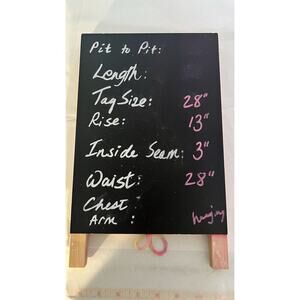 Pit to Pit:
Length:
Tag Size: 28"
Rise: 13"
Inside Seam: 3"
Waist: 28"
Chest
Arm :